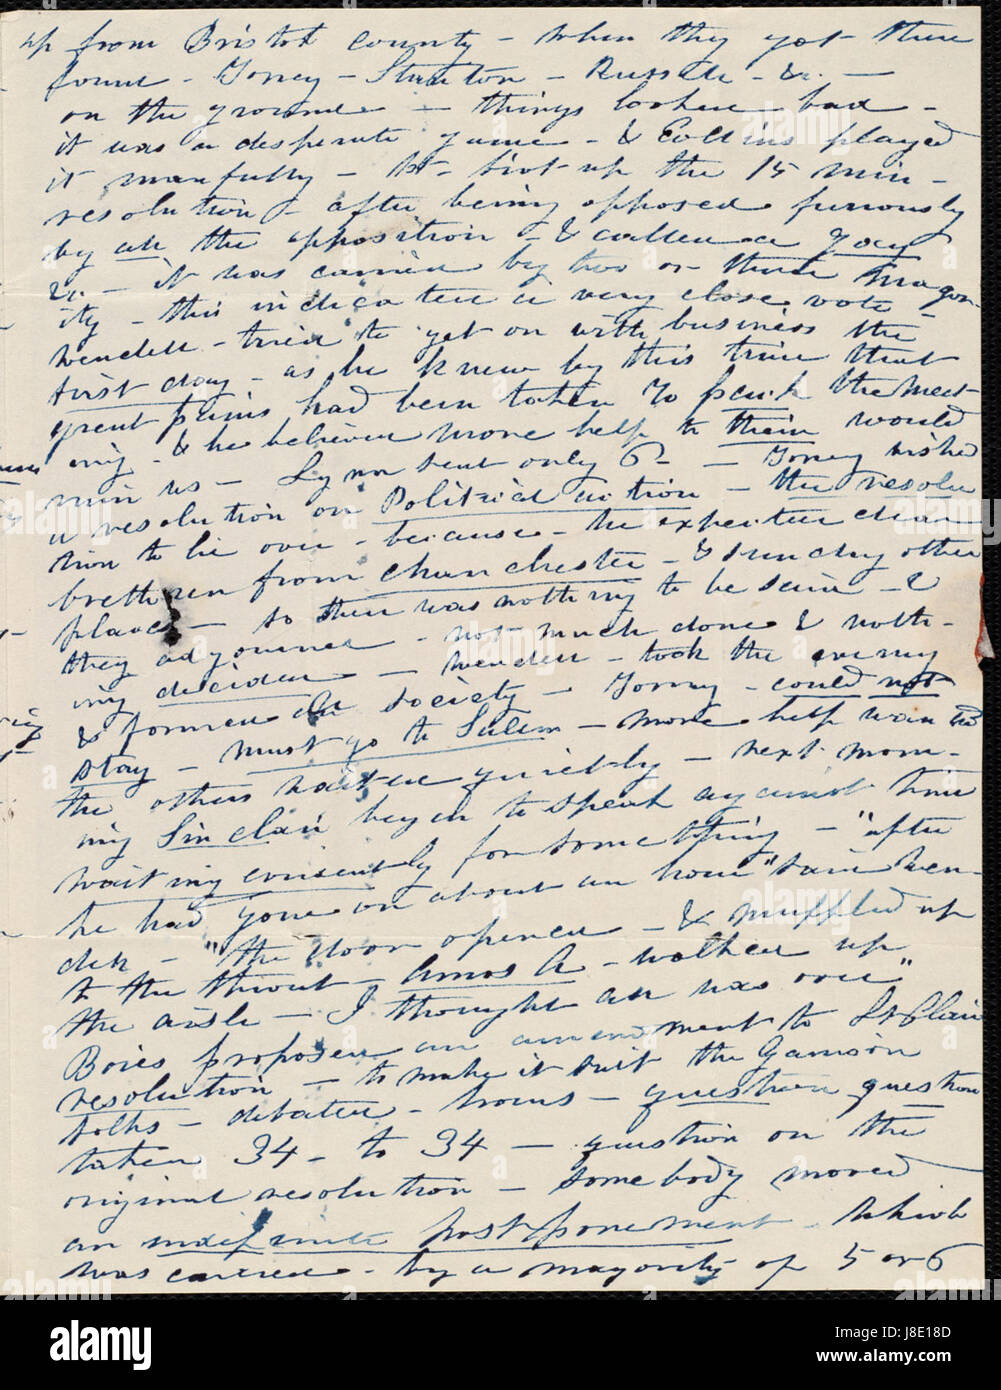 up from Bristol county - when they got there
found - Torrey - Stanton - Russell - &c. -
on the ground - things looked bad -
it was a desperate game - & Collins played
it manfully - 1st - put up the 15 min -
resolution - after being opposed furiously
by all the opposition - & called a gag
&c. - it was carried by two or three major-
ity - this indicated a very close vote -
Wendell - tried to get on with business the
first day - as he knew by this time that
great pains had been taken to pack the meet
ing - & he believed more help to them would
ruin us - Lynn sent only 6 - - Torrey wished
a resolution on Political action - the resolu
tion to lie over - because - he expected dear
brethren from Manchester - & sundry other
places - so there was nothing to be said - &
they adjourned - not much done & noth-
ing decided - Wendell - took the evening
& formed a society - Torrey - could not
stay - must go to Salem - more help was
the others waited quietly - next morn-
ing Sinclair began to speak against time
waiting evidently for something - "after
he had gone on about an hour" said Wen-
dell - "the door opened - & muffled up
to the throat - Amos A - walked up
the aisle - I thought all was over"
Boies proposed an amendment to St Clair
resolution - to make it suit the Garrison
folks - debated - hours - question question
taken 34 - to 34 - question on the
original resolution - somebody moved
an indefinite postponement - which
was carried - by a majority of 5 or 6
alamy
Image ID: J8E18D
www.alamy.com